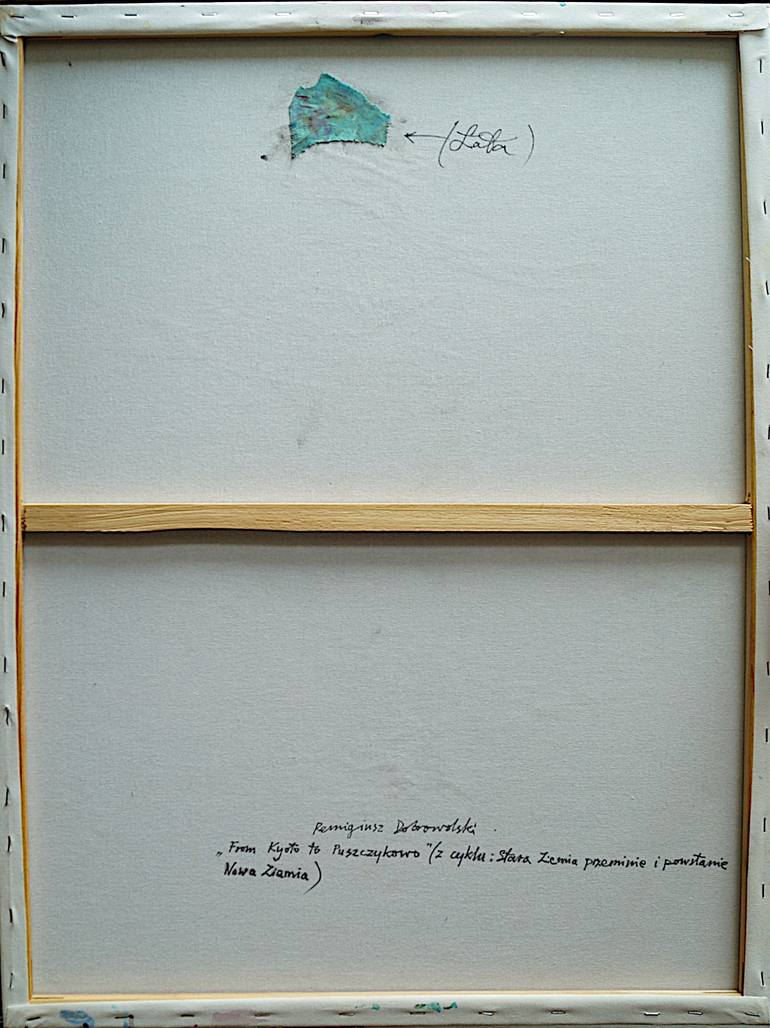 (Łata)
Remigiusz Dobrowolski.
„From Kyoto to Puszczykowo” (z cyklu: Stara Ziemia przeminie i powstanie
Nowa Ziamia)